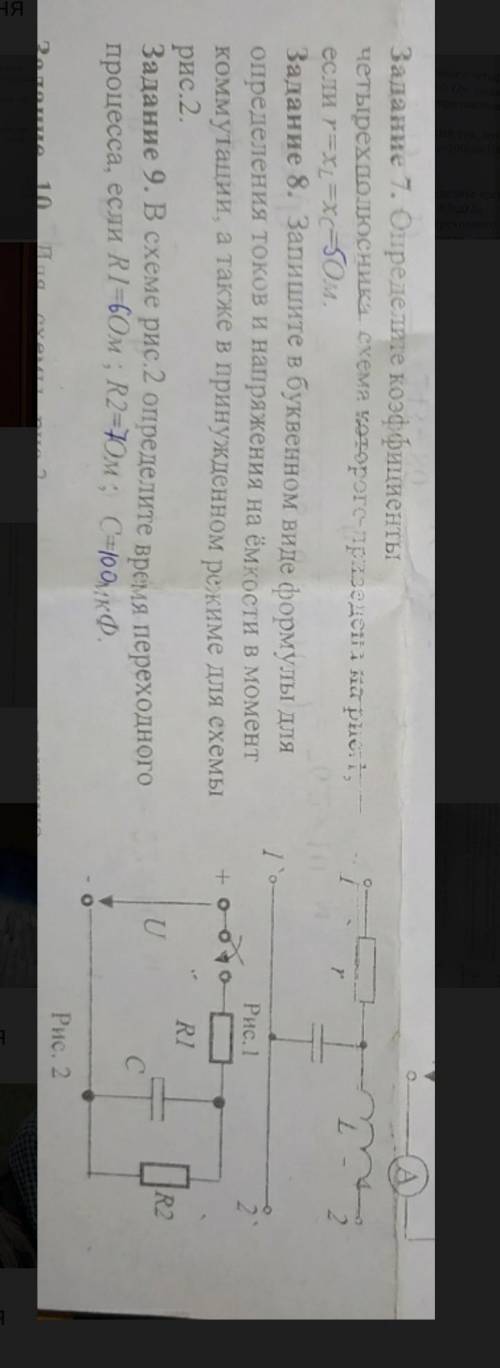 Задание 7. Определите коэффициенты
четырехполюсника схема которого приведена на рис.1,
если r=xL=xC=5Ом.
Задание 8. Запишите в буквенном виде формулы для
определения токов и напряжения на ёмкости в момент
коммутации, а также в принужденном режиме для схемы
рис.2.
Задание 9. В схеме рис.2 определите время переходного
процесса, если R1=6Ом; R2=7Ом; C=100мкФ.
A
1
r
L
2
1`
2`
Рис.1
+
R1
U
C
R2
-
Рис. 2